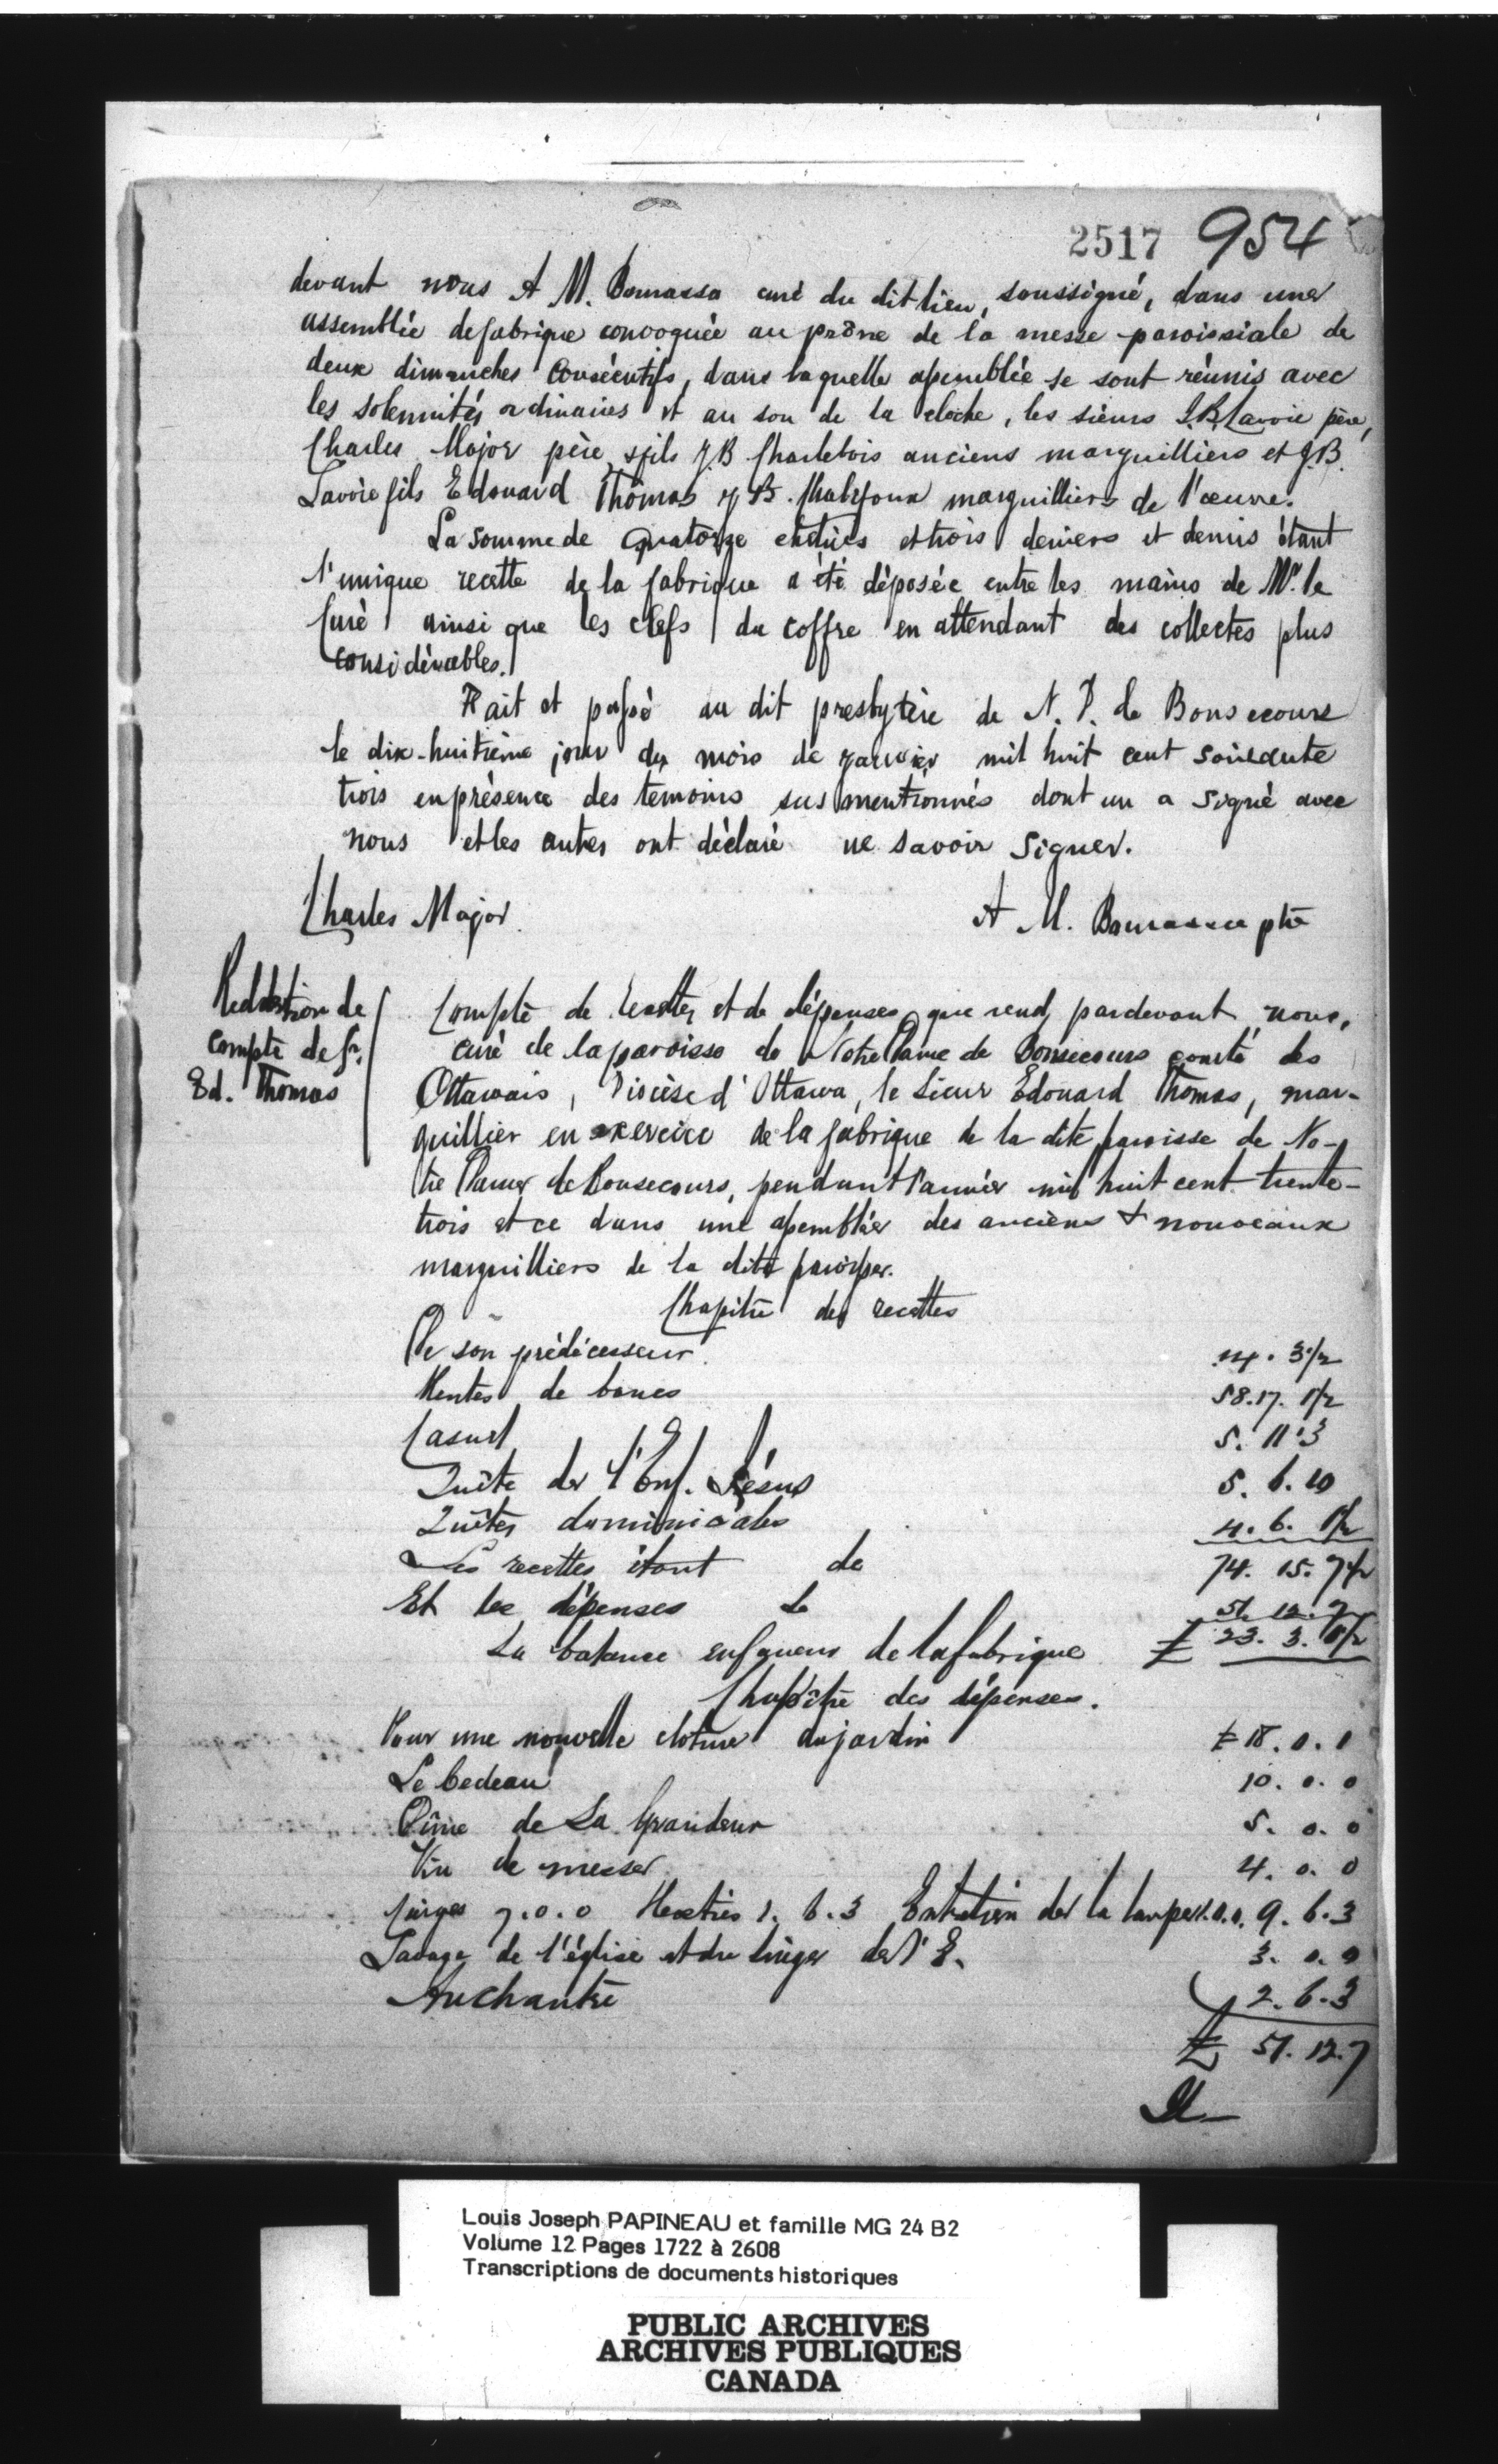 2517 954
devant nous A M. Bourassa curé du dit lieu, soussigné, dans une
assemblée de fabrique convoquée au prône de la messe paroissiale de
deux dimanches consécutifs, dans laquelle assemblée se sont réunis avec
les solennités ordinaires et au son de la cloche, les sieurs J.B. Lavoie père,
Charles Major père, & fils J.B Charlebois anciens marguilliers et J.B.
Lavoie fils Edouard Thomas J B. marguilliers de l'œuvre.
La somme de quatorze et trois deniers et demis étant
l'unique recette de la fabrique a été déposée entre les mains de Mr. le
Curé ainsi que les clefs du coffre en attendant des collectes plus
considérables.
Fait et passé au dit presbytère de N. D. de Bonsecours
le dix-huitième jour du mois de janvier mil huit cent soixante
trois en présence des témoins sus mentionnés dont un a signé avec
nous et les autres ont déclaré ne savoir signer.
Charles Major.
A M. Bourassa ptre
Reddition de
compte de Sr.
Ed. Thomas
Compte de recettes et de dépenses que rend, pardevant nous,
curé de la paroisse de Notre Dame de Bonsecours comté des
Ottawais, Diocèse d'Ottawa, le Sieur Edouard Thomas, mar-
guillier en exercice de la fabrique de la dite paroisse de No-
tre Dame de Bonsecours, pendant l'année mil huit cent trente-
trois et ce dans une assemblée des anciens & nouveaux
marguilliers de la dite paroisse.
Chapitre des recettes
De son prédécesseur. 14. 3½
Rentes de bancs 58.17. 1½
Casuel 5. 11.3
Quête de l'Enf. Jésus 5. 6. 10
Quêtes dominicales 4. 6. 1½
Les recettes étant de 74. 15. 7½
Et les dépenses de 51. 12. 7
La balance en faveur de la fabrique £ 23. 3. 0½
Chapitre des dépenses.
Pour une nouvelle cloture du jardin £ 18. 0. 1
Le bedeau 10. 0. 0
Dîme de Sa Grandeur 5. 0. 0
Vin de messe 4. 0. 0
Cierges 7.0.0 1. 6.3 Entretien de la lampe 1.0.0. 9. 6.3
Lavage de l'église et du linge de l'E. 3. 0. 0
Au chantre 2. 6.3
£ 51. 12.7
Louis Joseph PAPINEAU et famille MG 24 B2
Volume 12 Pages 1722 à 2608
Transcriptions de documents historiques
PUBLIC ARCHIVES
ARCHIVES PUBLIQUES
CANADA